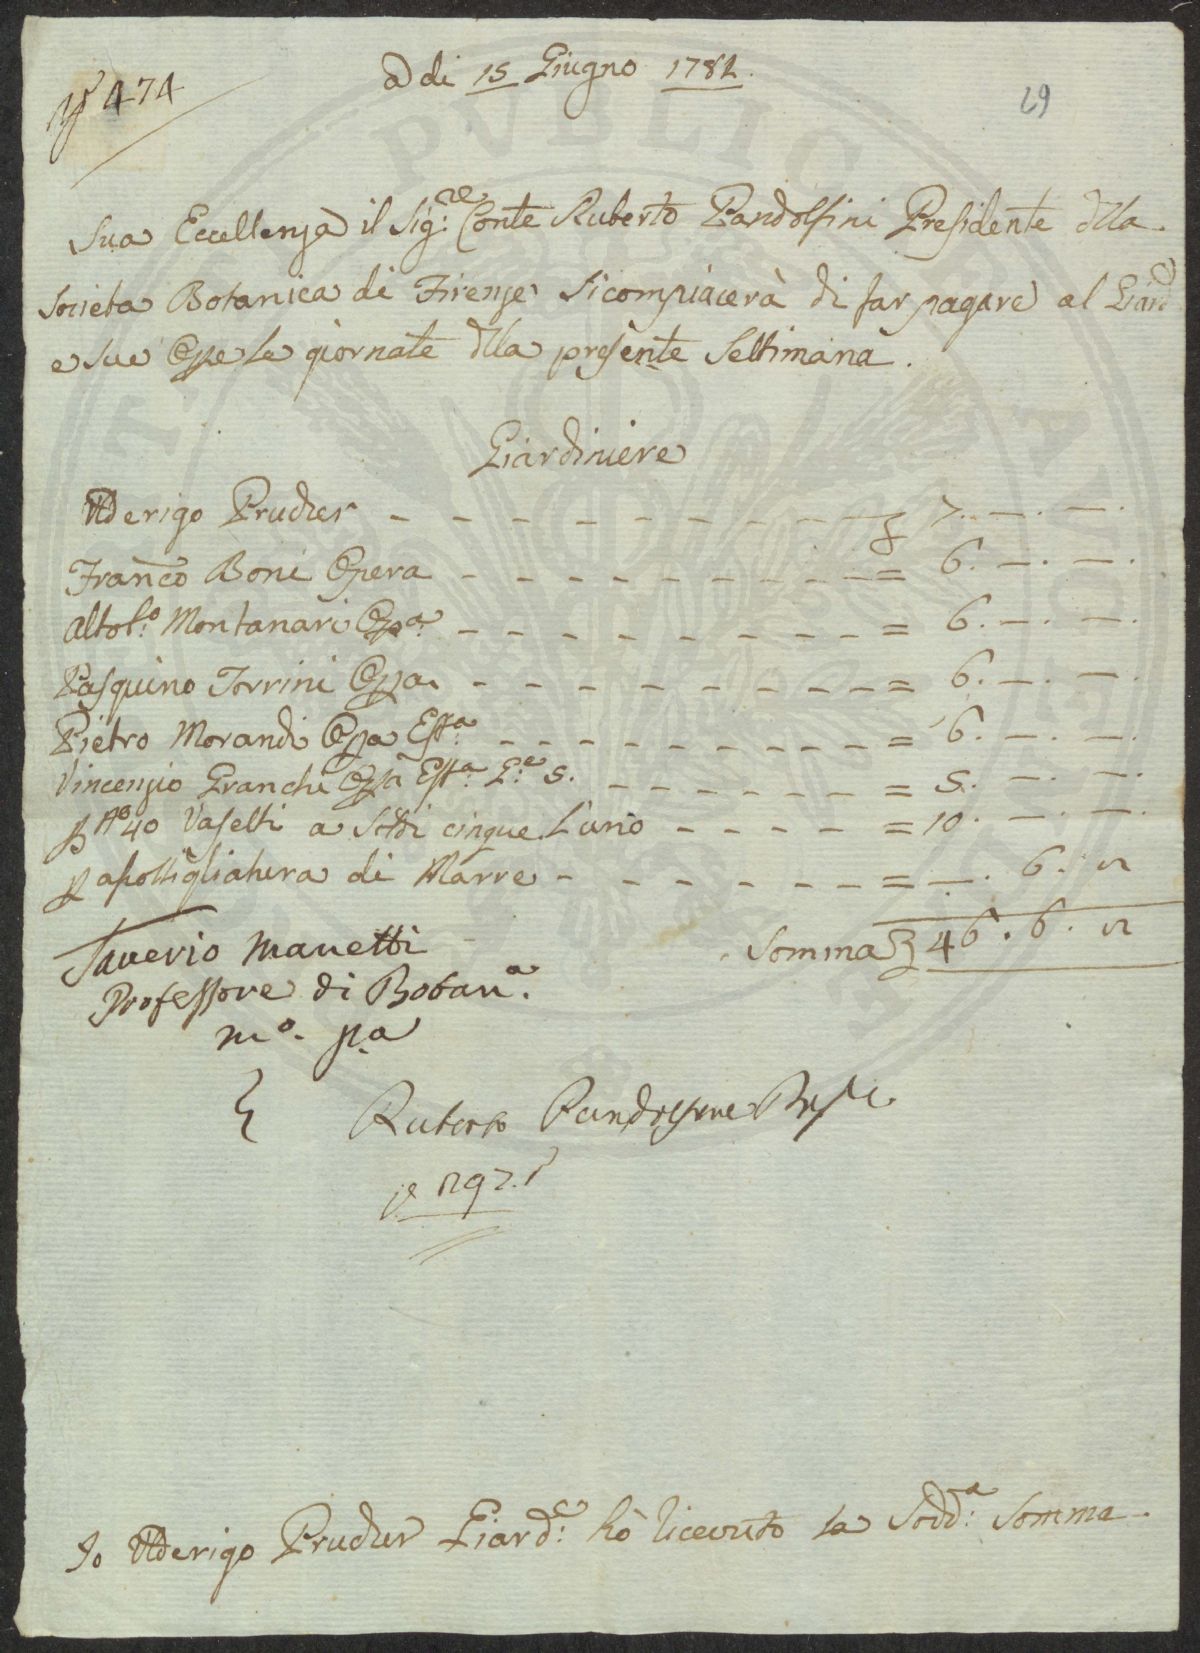 A di 15 Giugno 1782.
N° 474
29
Sua Eccellenza il Sig:re Conte Ruberto Pandolfini Presidente dlla
Società Botanica di Firenze si compiacerà di far pagare al Giard:e
e sue Opre le giornate dlla presente Settimana.
Giardiniere
Ulderigo Prucker - - - - - - - - - - £ 7. —. —.
Franco Boni Opera - - - - - - - - - = 6. —. —.
Altob:o Montanari Opa: - - - - - - - - = 6. —. —.
Pasquino Torrini Opa. - - - - - - - - = 6. —. —.
Pietro Morandi Opa Essa: - - - - - - - - = 6. —. —.
Vincenzio Granchi Opa Essa: G:e 5. - - - - - - = 5. —. —.
P No 40 Vaselli a Soldi cinque l'uno - - - - = 10. —. —.
P asottigliatura di Marre - - - - - - - = —. 6. 
Somma £ 46. 6. 
Saverio Manetti
Professore di Botan:a
mo. pa
Ruberto Pandolfini Preste
Io Ulderigo Prucker Giard:e hò ricevuto la Sodd:a Somma
PVBLIC